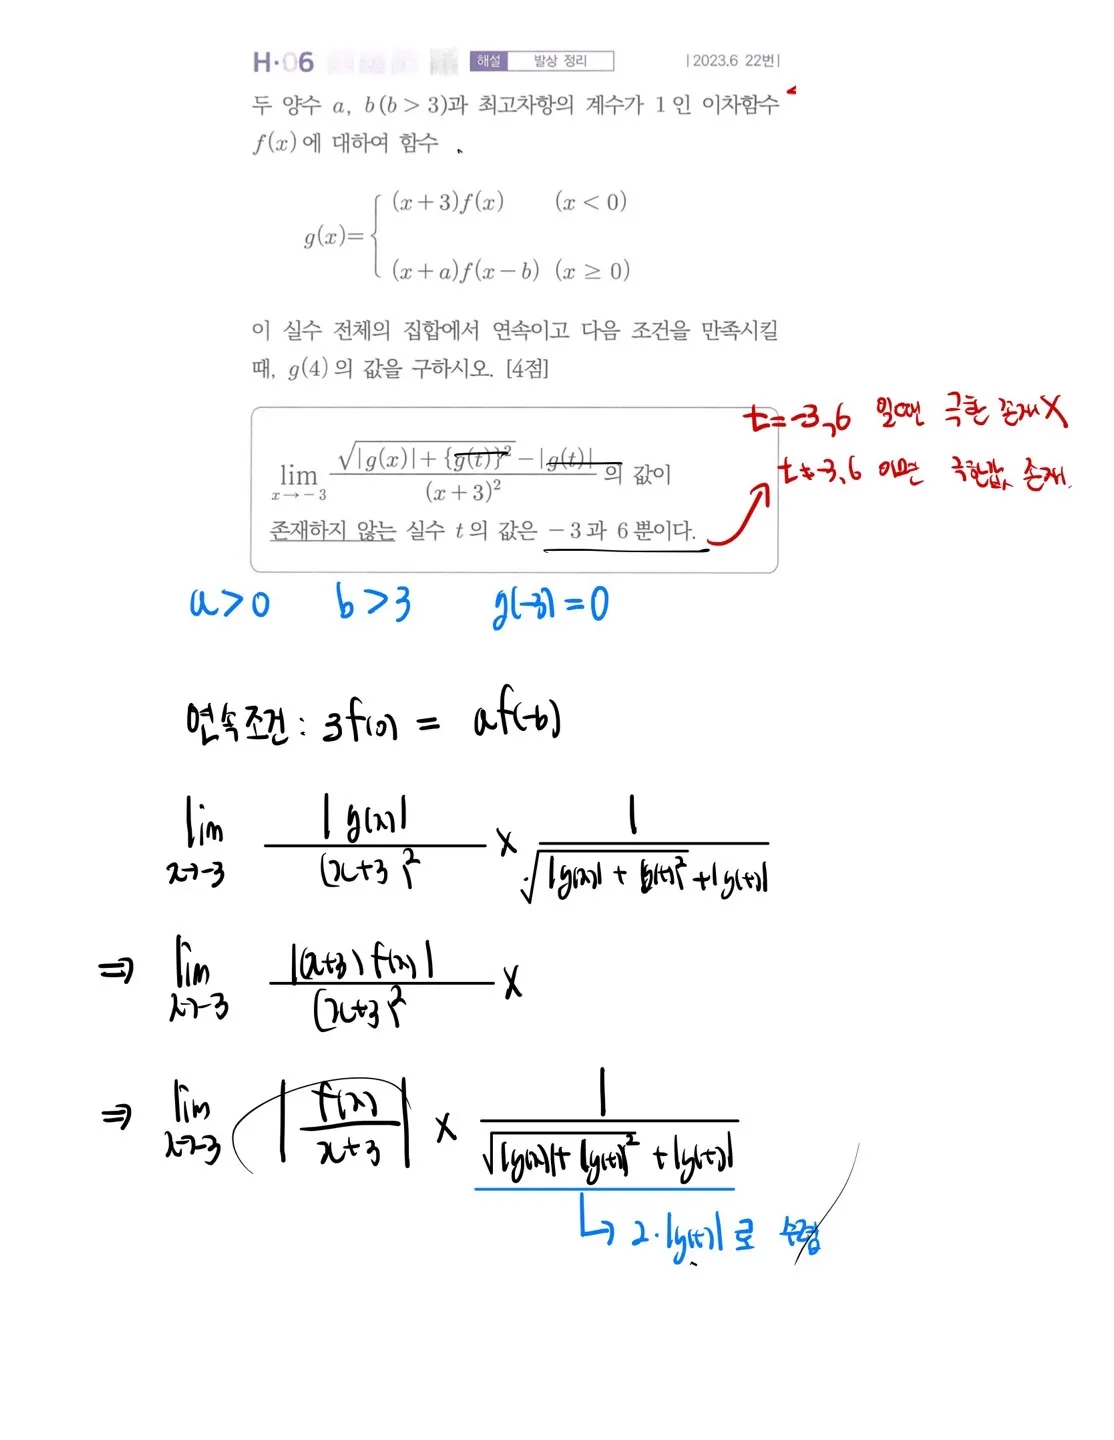 H·06 해설 발상 정리 |2023.6 22번|
두 양수 a, b(b > 3)과 최고차항의 계수가 1인 이차함수
f(x)에 대하여 함수
g(x)= { (x+3)f(x) (x < 0)
(x+a)f(x-b) (x ≥ 0)
이 실수 전체의 집합에서 연속이고 다음 조건을 만족시킬
때, g(4)의 값을 구하시오. [4점]
lim x→-3 (√(|g(x)|+{g(t)}²) - |g(t)|) / (x+3)² 의 값이
존재하지 않는 실수 t의 값은 -3과 6뿐이다.
t=-3,6 일때만 극한 존재 X
t≠-3,6 이면 극한값 존재.
a>0 b>3 g(-3)=0
연속조건: 3f(0) = af(-b)
lim x→-3 |g(x)| / (x+3)² × 1 / (√(|g(x)| + |g(t)|²) + |g(t)|)
⇒ lim x→-3 |(x+3) f(x)| / (x+3)² ×
⇒ lim x→-3 | f(x) / (x+3) | × 1 / (√(|g(x)| + |g(t)|²) + |g(t)|)
↳ 2·|g(t)|로 수렴